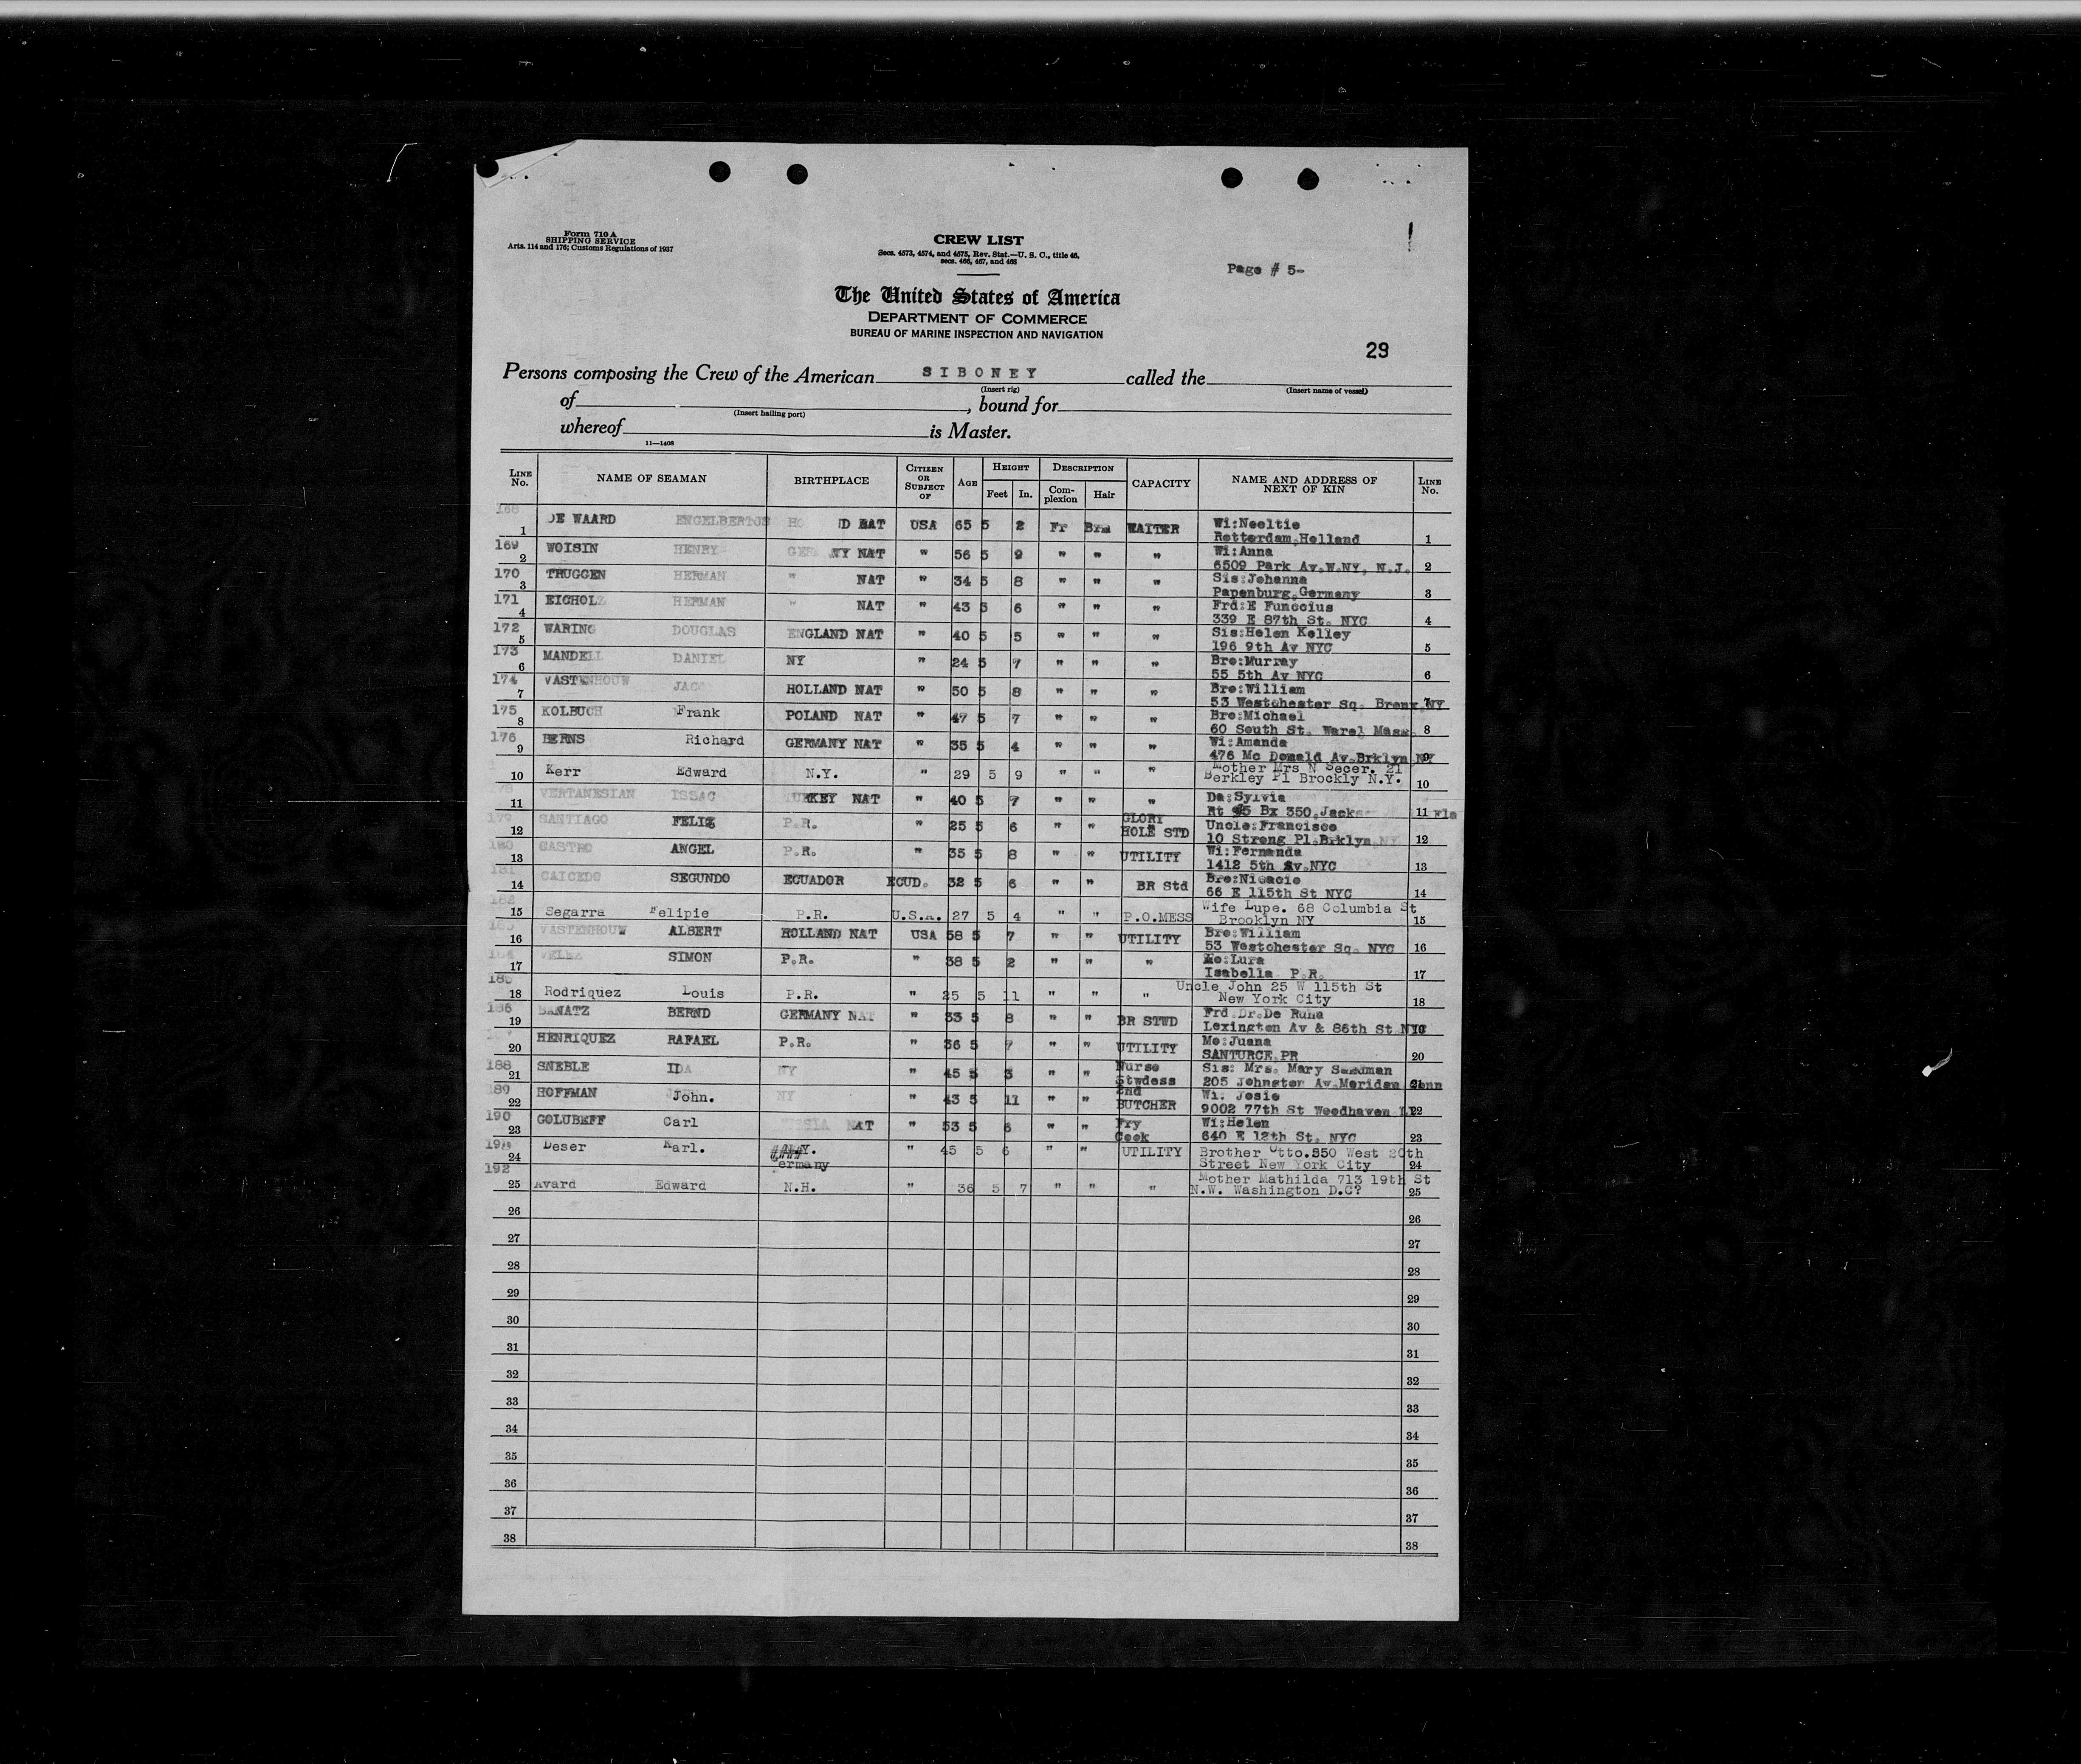 Form 710 A
SHIPPING SERVICE
Arts. 114 and 176; Customs Regulations of 1937
CREW LIST
Secs. 4573, 4574, and 4575, Rev. Stat.—U. S. C., title 46,
secs. 466, 467, and 468
Page # 5-
The United States of America
DEPARTMENT OF COMMERCE
BUREAU OF MARINE INSPECTION AND NAVIGATION
29
Persons composing the Crew of the American SIBONEY called the
(Insert rig) (Insert name of vessel)
of , bound for
(Insert hailing port)
whereof is Master.
11—1408
LINE No. NAME OF SEAMAN BIRTHPLACE CITIZEN OR SUBJECT OF AGE HEIGHT Feet In. DESCRIPTION Complexion Hair CAPACITY NAME AND ADDRESS OF NEXT OF KIN LINE No.
168 1 DE WAARD ENGELBERTUS HO D NAT USA 65 5 2 Fr Brn WAITER Wi:Neeltie 1
Rotterdam,Holland
169 2 WOISIN HENRY GER NY NAT " 56 5 9 " " " Wi:Anna 2
6509 Park Av.W.NY, N.J.
170 3 TRUGGEN HERMAN " NAT " 34 5 8 " " " Sis:Johanna 3
Papenburg,Germany
171 4 EICHOLZ HERMAN " NAT " 43 5 6 " " " Frd:E Funccius 4
339 E 87th St. NYC
172 5 WARING DOUGLAS ENGLAND NAT " 40 5 5 " " " Sis:Helen Kelley 5
196 9th Av NYC
173 6 MANDELL DANIEL NY " 24 5 7 " " " Bro:Murray 6
55 5th Av NYC
174 7 VASTENHOUW JACO HOLLAND NAT " 50 5 8 " " " Bro:William 7
53 Westchester Sq. Bronx NY
175 8 KOLBUCH Frank POLAND NAT " 47 5 7 " " " Bro:Michael 8
60 South St. Warel Mass.
176 9 BERNS Richard GERMANY NAT " 35 5 4 " " " Wi:Amanda 9
476 Mc Donald Av.Brklyn NY
10 Kerr Edward N.Y. " 29 5 9 " " " Mother Mrs N Secer. 21 10
Berkley Pl Brockly N.Y.
178 11 VERTANESIAN ISSAC TURKEY NAT " 40 5 7 " " " Da:Sylvia 11
Rt #5 Bx 350,Jacks Fla
179 12 SANTIAGO FELIX P.R. " 25 5 6 " " GLORY HOLE STD Uncle:Francisco 12
10 Strong Pl.Brklyn NY
180 13 CASTRO ANGEL P.R. " 35 5 8 " " UTILITY Wi:Fernanda 13
1412 5th Av.NYC
181 14 CAICEDO SEGUNDO ECUADOR ECUD. 32 5 6 " " BR Std Bro:Nicacio 14
66 E 115th St NYC
182 15 Segarra Felipie P.R. U.S.A. 27 5 4 " " P.O.MESS Wife Lupe. 68 Columbia St 15
Brooklyn NY
183 16 VASTENHOUW ALBERT HOLLAND NAT USA 58 5 7 " " UTILITY Bro:William 16
53 Westchester Sq. NYC
184 17 VELEZ SIMON P.R. " 38 5 2 " " " Mo:Lura 17
Isabella P.R.
185 18 Rodriquez Louis P.R. " 25 5 11 " " " Uncle John 25 W 115th St 18
New York City
186 19 BANATZ BERND GERMANY NAT " 33 5 8 " " BR STWD Frd.Dr.De Runa 19
Lexington Av & 86th St NYC
20 HENRIQUEZ RAFAEL P.R. " 36 5 7 " " UTILITY Mo:Juana 20
SANTURCE,PR
188 21 SNEBLE IDA NY " 45 5 3 " " Nurse Stwdess Sis: Mrs. Mary 21
205 Johnston Av.Meriden Conn
189 22 HOFFMAN John. NY " 43 5 11 " " 2nd BUTCHER Wi. Josie 22
9002 77th St Woodhaven LI
190 23 GOLUBEFF Carl SSIA NAT " 53 5 6 " " Fry Cook Wi:Helen 23
640 E 12th St. NYC
191 24 Deser Karl. ####Y. Germany " 45 5 6 " " UTILITY Brother Otto.550 West 20th 24
Street New York City
192 25 Avard Edward N.H. " 36 5 7 " " " Mother Mathilda 713 19th St 25
N.W. Washington D.C?
26 26
27 27
28 28
29 29
30 30
31 31
32 32
33 33
34 34
35 35
36 36
37 37
38 38